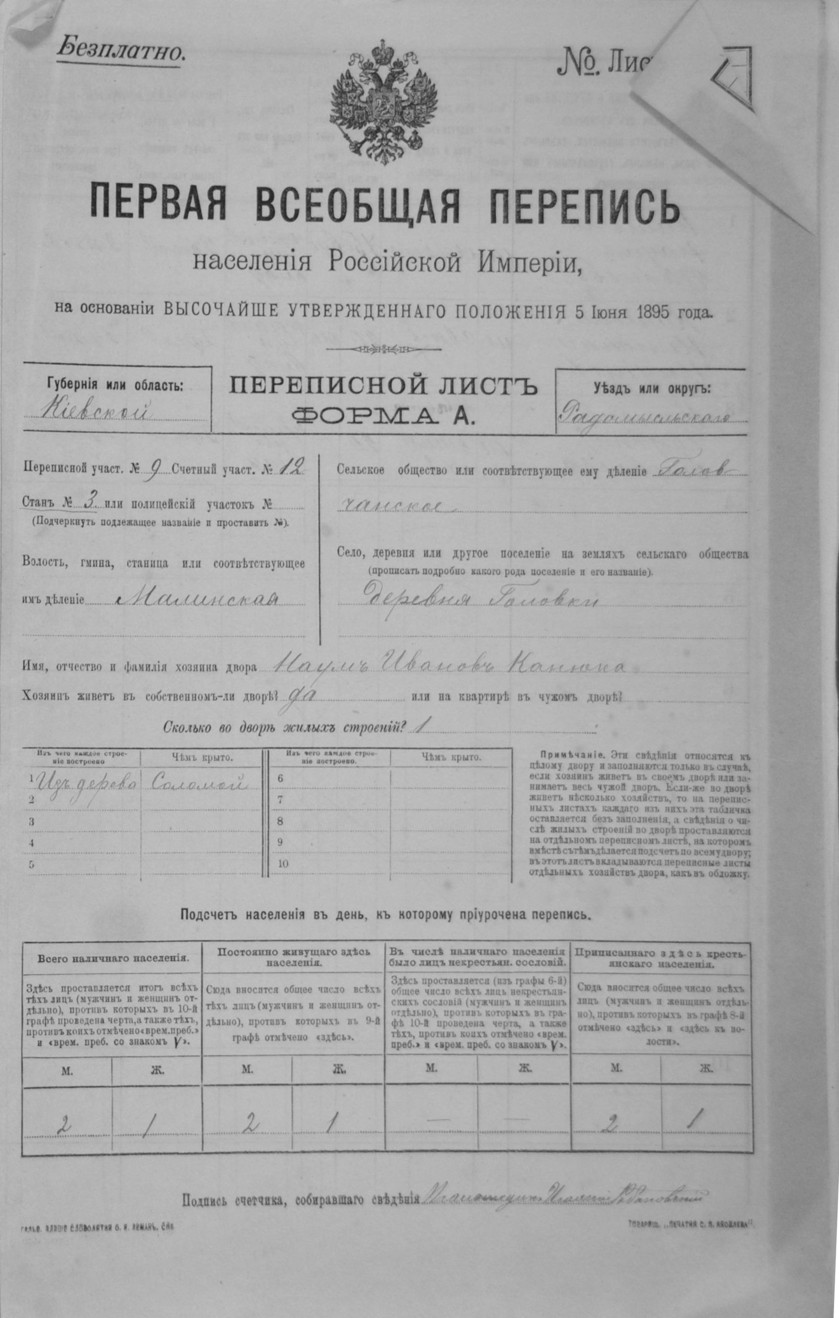 Безплатно.
№. Лис
ПЕРВАЯ ВСЕОБЩАЯ ПЕРЕПИСЬ
населенія Россійской Имперіи,
на основаніи ВЫСОЧАЙШЕ УТВЕРЖДЕННАГО ПОЛОЖЕНІЯ 5 Іюня 1895 года.
Губернія или область:
Кіевской
ПЕРЕПИСНОЙ ЛИСТЪ
ФОРМА А.
Уѣздъ или округъ:
Радомысльскаго
Переписной участ. № 9 Счетный участ. № 12
Станъ № 3 или полицейскій участокъ №
(Подчеркнуть подлежащее названіе и проставить №).
Волость, гмина, станица или соотвѣтствующее
имъ дѣленіе Малинская
Сельское общество или соотвѣтствующее ему дѣленіе Голов
чанское
Село, деревня или другое поселеніе на земляхъ сельскаго общества
(прописать подробно какого рода поселеніе и его названіе).
Деревня Головки
Имя, отчество и фамилія хозяина двора Наумъ Ивановъ Канюка
Хозяинъ живетъ въ собственномъ-ли дворѣ? да или на квартирѣ въ чужомъ дворѣ?
Сколько во дворѣ жилыхъ строеній? 1
Изъ чего каждое строе-
ніе построено.
Чѣмъ крыто.
1 Изъ дерева Соломой
2
3
4
5
Изъ чего каждое строе-
ніе построено.
Чѣмъ крыто.
6
7
8
9
10
Примѣчаніе. Эти свѣдѣнія относятся къ
цѣлому двору и заполняются только въ случаѣ,
если хозяинъ живетъ въ своемъ дворѣ или за-
нимаетъ весь чужой дворъ. Если-же во дворѣ
живетъ нѣсколько хозяйствъ, то на перепис-
ныхъ листахъ каждаго изъ нихъ эта табличка
оставляется безъ заполненія, а свѣдѣнія о чи-
слѣ жилыхъ строеній во дворѣ проставляются
на отдѣльномъ переписномъ листѣ, на которомъ
вмѣстѣ съ тѣмъ дѣлается подсчетъ по всему двору;
въ этотъ листъ вкладываются переписные листы
отдѣльныхъ хозяйствъ двора, какъ въ обложку.
Подсчетъ населенія въ день, къ которому пріурочена перепись.
Всего наличнаго населенія.
Здѣсь проставляется итогъ всѣхъ
тѣхъ лицъ (мужчинъ и женщинъ от-
дѣльно), противъ которыхъ въ 10-й
графѣ проведена черта, а также тѣхъ,
противъ коихъ отмѣчено «врем. преб.»
и «врем. преб. со знакомъ V».
М. Ж.
2 1
Постоянно живущаго здѣсь
населенія.
Сюда вносится общее число всѣхъ
тѣхъ лицъ (мужчинъ и женщинъ от-
дѣльно), противъ которыхъ въ 9-й
графѣ отмѣчено «здѣсь».
М. Ж.
2 1
Въ числѣ наличнаго населенія
было лицъ некрестьян. сословій.
Здѣсь проставляется (изъ графы 6-й)
общее число всѣхъ лицъ некрестьян-
скихъ сословій (мужчинъ и женщинъ
отдѣльно), противъ которыхъ въ гра-
фѣ 10-й проведена черта, а также
тѣхъ, противъ коихъ отмѣчено «врем.
преб.» и «врем. преб. со знакомъ V».
М. Ж.
— —
Приписаннаго здѣсь кресть-
янскаго населенія.
Сюда вносится общее число всѣхъ
лицъ (мужчинъ и женщинъ отдѣль-
но), противъ которыхъ въ графѣ 8-й
отмѣчено «здѣсь» и «здѣсь къ во-
лости».
М. Ж.
2 1
Подпись счетчика, собиравшаго свѣдѣнія